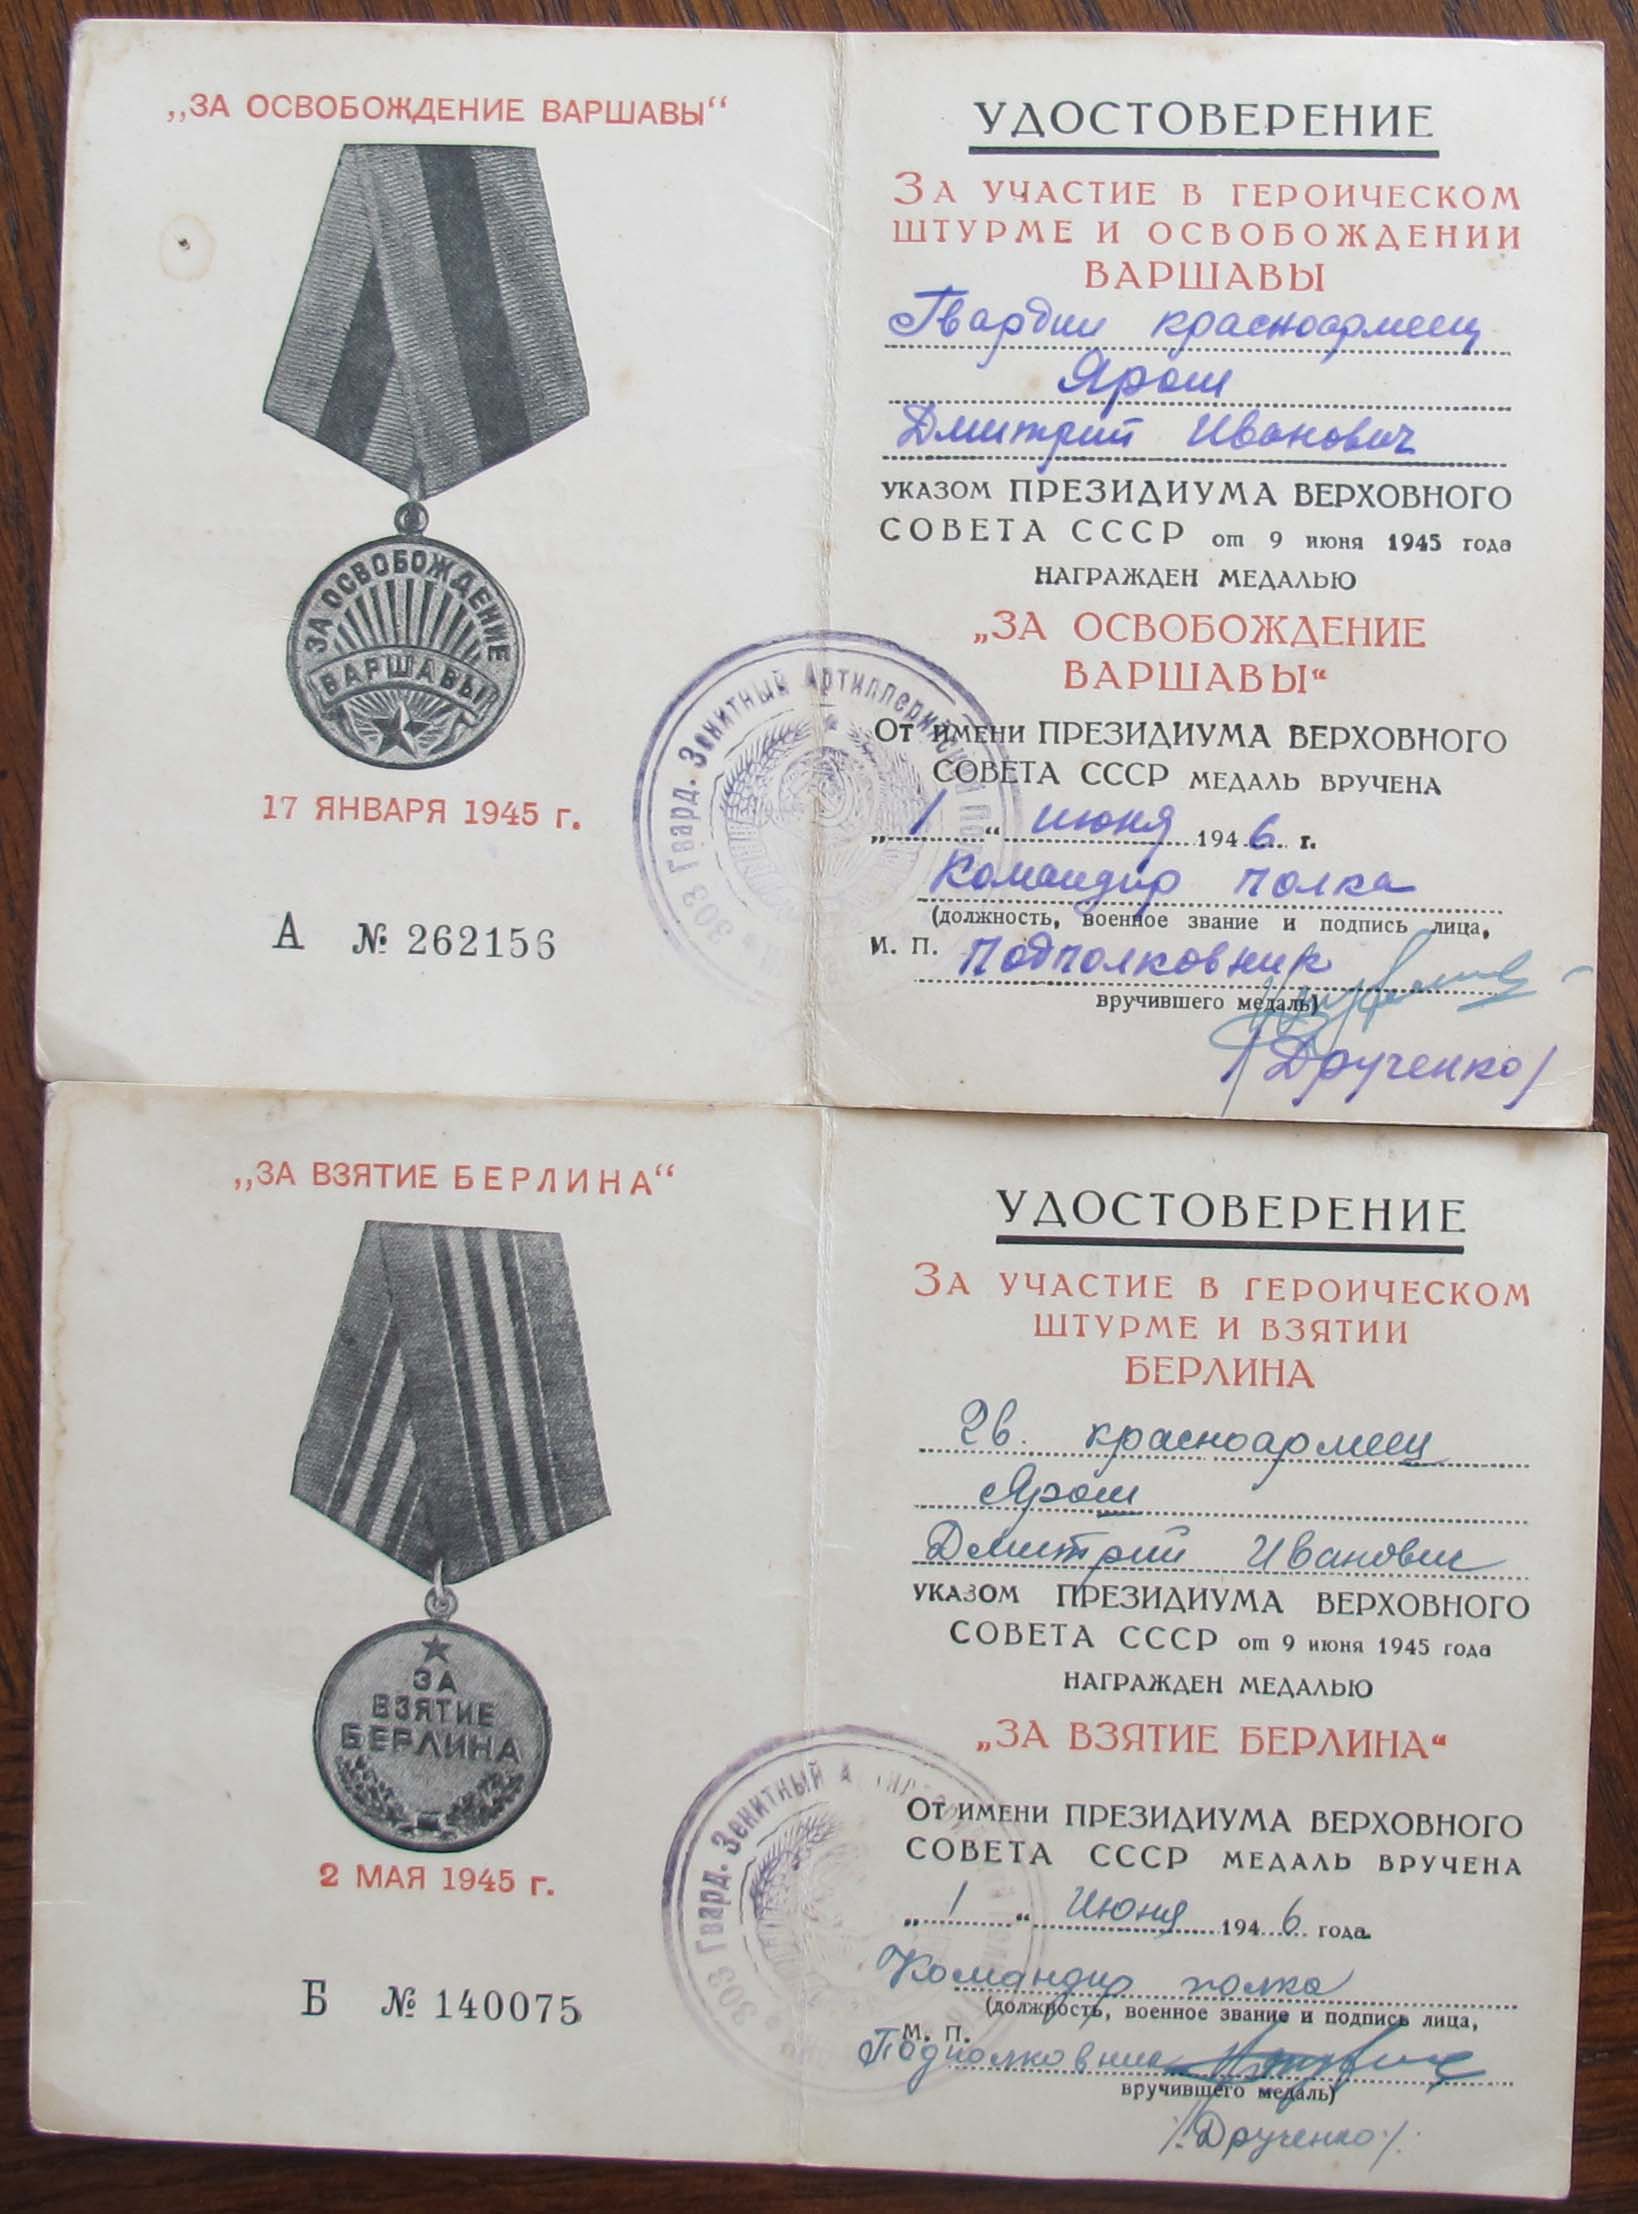 „ЗА ОСВОБОЖДЕНИЕ ВАРШАВЫ“
ЗА ОСВОБОЖДЕНИЕ
ВАРШАВЫ
17 ЯНВАРЯ 1945 г.
А № 262156
УДОСТОВЕРЕНИЕ
ЗА УЧАСТИЕ В ГЕРОИЧЕСКОМ
ШТУРМЕ И ОСВОБОЖДЕНИИ
ВАРШАВЫ
Гвардии красноармеец
Ярош
Дмитрий Иванович
УКАЗОМ ПРЕЗИДИУМА ВЕРХОВНОГО
СОВЕТА СССР от 9 июня 1945 года
НАГРАЖДЕН МЕДАЛЬЮ
„ЗА ОСВОБОЖДЕНИЕ
ВАРШАВЫ“
ОТ ИМЕНИ ПРЕЗИДИУМА ВЕРХОВНОГО
СОВЕТА СССР МЕДАЛЬ ВРУЧЕНА
„1“ июня 1946 г.
Командир полка
(должность, военное звание и подпись лица,
М. П. Подполковник
вручившего медаль)
/Друченко/
303 Гвард. Зенитный Артиллерийский
„ЗА ВЗЯТИЕ БЕРЛИНА“
ЗА
ВЗЯТИЕ
БЕРЛИНА
2 МАЯ 1945 г.
Б № 140075
УДОСТОВЕРЕНИЕ
ЗА УЧАСТИЕ В ГЕРОИЧЕСКОМ
ШТУРМЕ И ВЗЯТИИ
БЕРЛИНА
Гв. красноармеец
Ярош
Дмитрий Иванович
УКАЗОМ ПРЕЗИДИУМА ВЕРХОВНОГО
СОВЕТА СССР от 9 июня 1945 года
НАГРАЖДЕН МЕДАЛЬЮ
„ЗА ВЗЯТИЕ БЕРЛИНА“
ОТ ИМЕНИ ПРЕЗИДИУМА ВЕРХОВНОГО
СОВЕТА СССР МЕДАЛЬ ВРУЧЕНА
„1“ Июня 1946 года
Командир полка
(должность, военное звание и подпись лица,
М. П.
Подполковник
вручившего медаль)
/:Друченко:/
303 Гвард. Зенитный